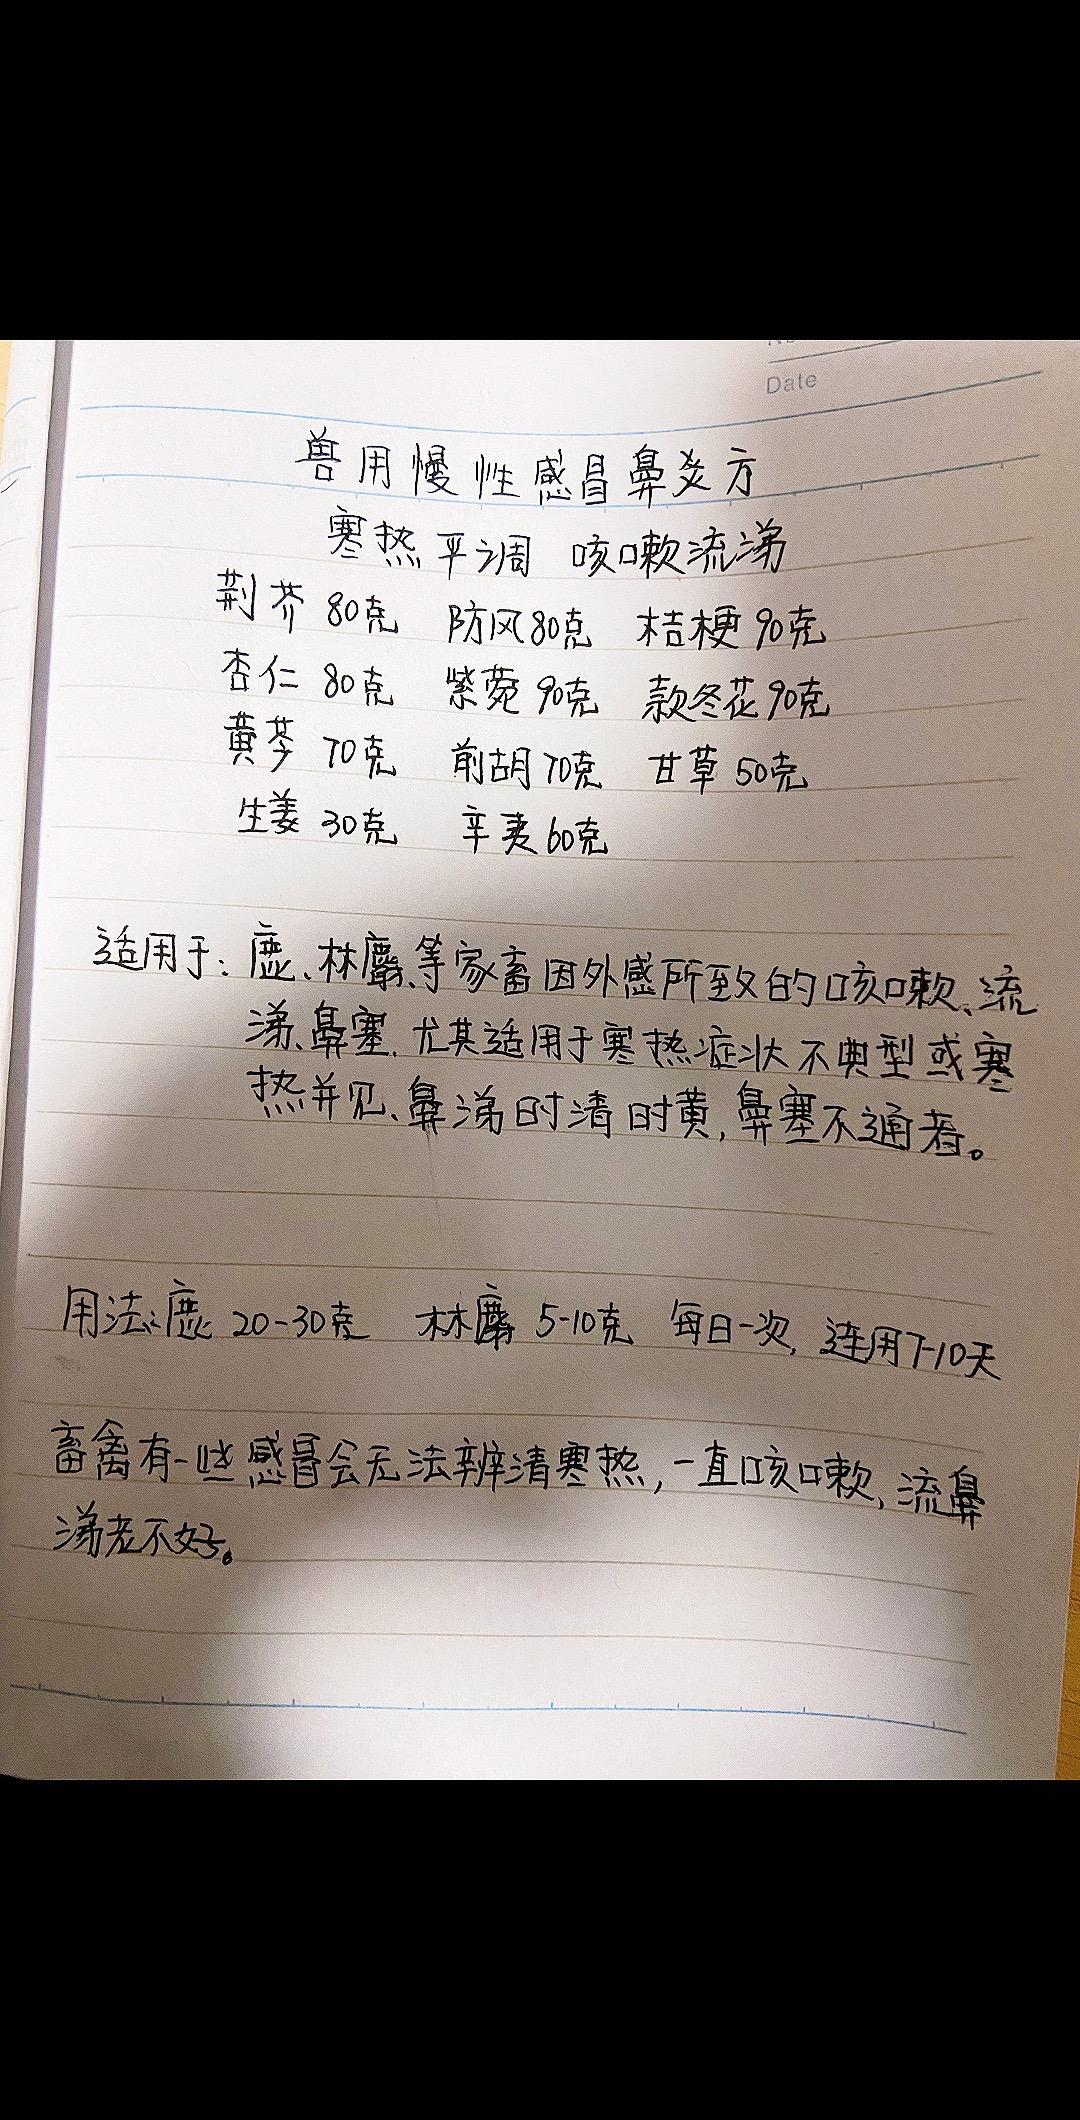 Date
兽用慢性感冒鼻炎方
寒热平调 咳嗽流涕
荆芥 80克 防风80克 桔梗90克
杏仁 80克 紫菀90克 款冬花90克
黄芩 70克 前胡70克 甘草50克
生姜 30克 辛夷60克
适用于:鹿、林麝、等家畜因外感所致的咳嗽、流
涕、鼻塞.尤其适用于寒热症状不典型或寒
热并见、鼻涕时清时黄,鼻塞不通者。
用法:鹿 20-30克 林麝 5-10克 每日一次,连用7-10天
畜禽有一些感冒会无法辨清寒热,一直咳嗽,流鼻
涕老不好。